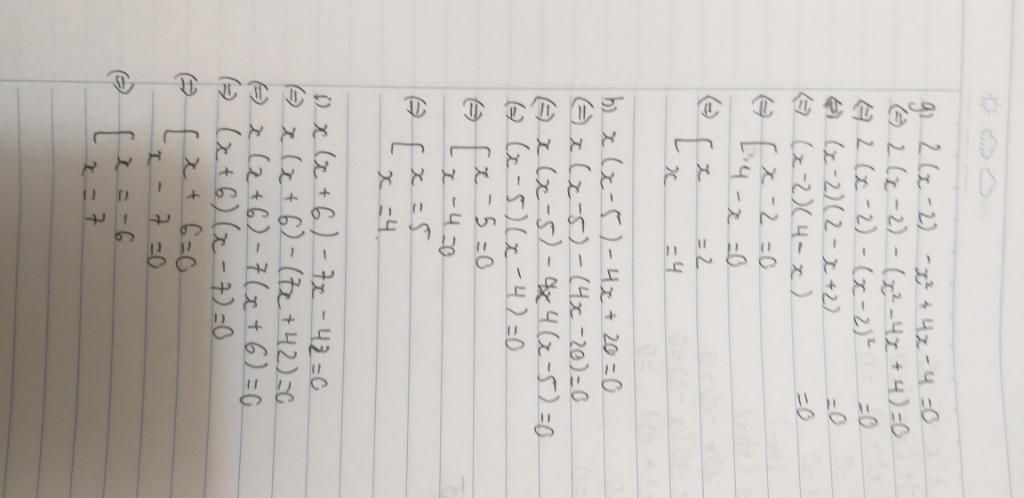 g) 2(x-2) - x² + 4x - 4 = 0
(=) 2(x-2) - (x² - 4x + 4) = 0
(=) 2(x-2) - (x-2)² = 0
(=) (x-2)(2-x+2) = 0
(=) (x-2)(4-x) = 0
(=) [ x-2 = 0
4-x = 0
(=) [ x = 2
x = 4
h) x(x-5) - 4x + 20 = 0
(=) x(x-5) - (4x-20) = 0
(=) x(x-5) - 4(x-5) = 0
(=) (x-5)(x-4) = 0
(=) [ x-5 = 0
x-4 = 0
(=) [ x = 5
x = 4
i) x(x+6) - 7x - 42 = 0
(=) x(x+6) - (7x+42) = 0
(=) x(x+6) - 7(x+6) = 0
(=) (x+6)(x-7) = 0
(=) [ x+6 = 0
x-7 = 0
(=) [ x = -6
x = 7